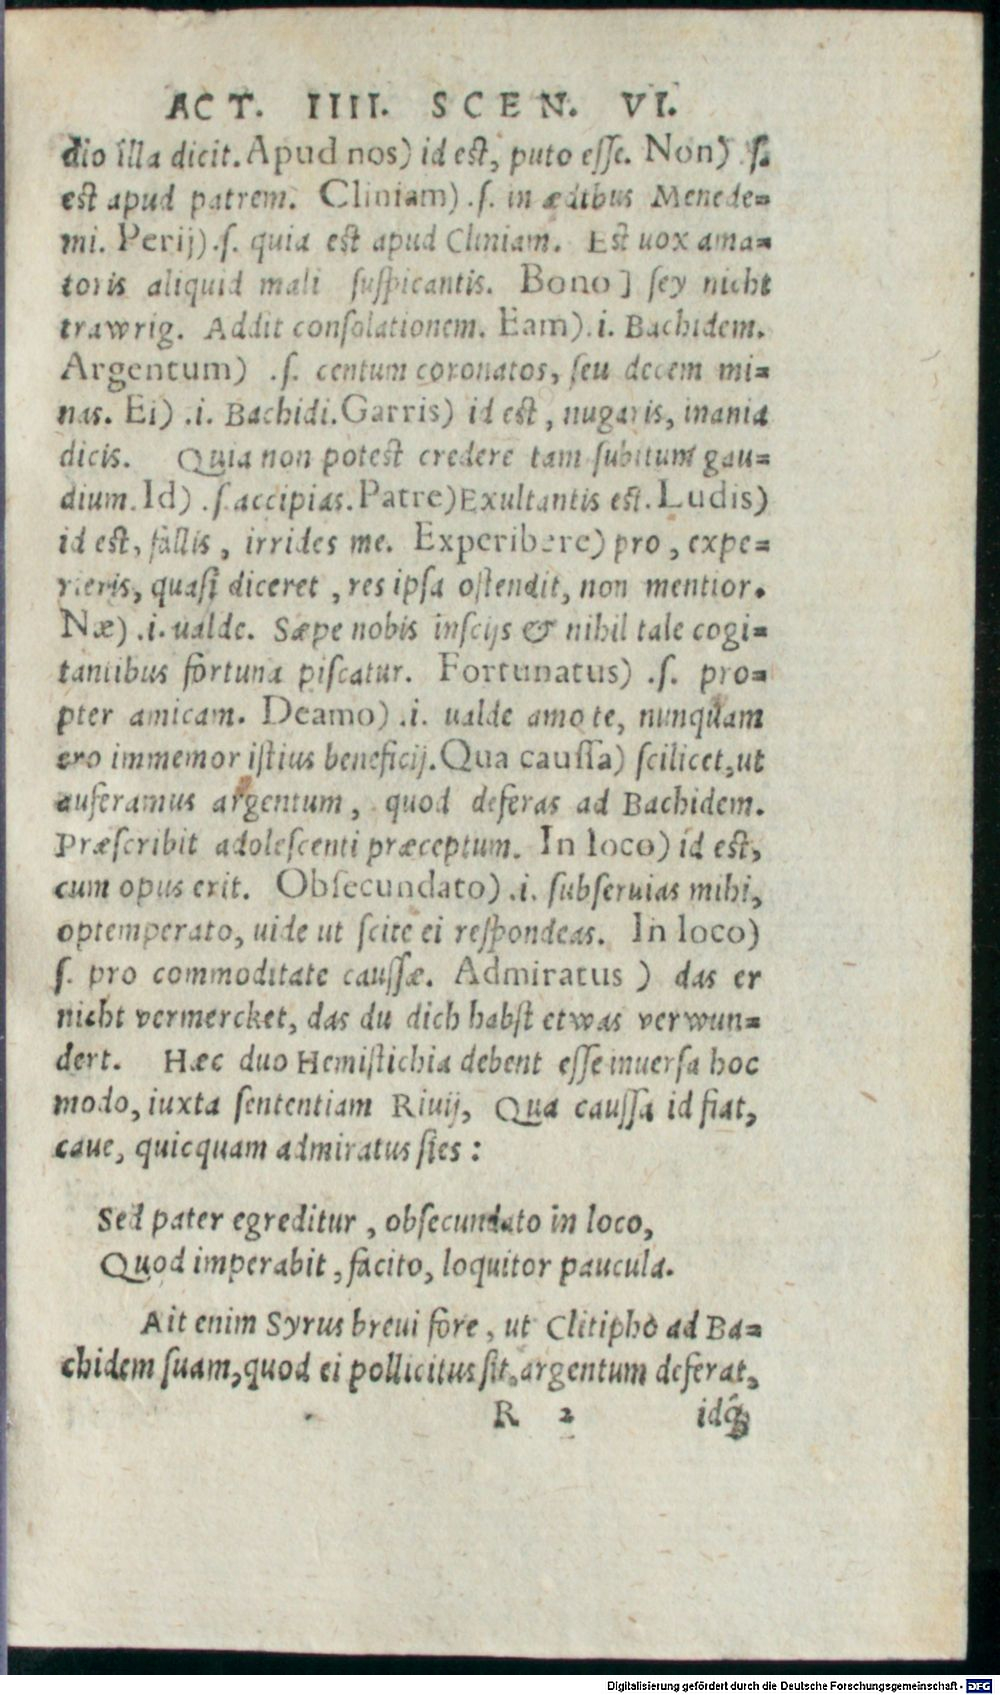 ACT. IIII. SCEN. VI.
dio illa dicit. Apud nos) id est, puto esse. Non) .ſ.
est apud patrem. Cliniam) .ſ. in ædibus Menede=
mi. Perij) .ſ. quia est apud Cliniam. Est uox ama=
toris aliquid mali ſuſpicantis. Bono] ſey nicht
trawrig. Addit conſolationem. Eam) .i. Bachidem.
Argentum) .ſ. centum coronatos, ſeu decem mi=
nas. Ei) .i. Bachidi. Garris) id est, nugaris, inania
dicis. Quia non potest credere tam ſubitum gau=
dium. Id) .ſ. accipias. Patre) Exultantis est. Ludis)
id est, fallis, irrides me. Experibere) pro, expe=
rieris, quaſi diceret, res ipſa oſtendit, non mentior.
Næ) .i. ualde. Sæpe nobis inſcijs & nihil tale cogi=
tantibus fortuna piſcatur. Fortunatus) .ſ. pro=
pter amicam. Deamo) .i. ualde amo te, nunquam
ero immemor iſtius beneficij. Qua cauſſa) ſcilicet, ut
auferamus argentum, quod deferas ad Bachidem.
Præſcribit adoleſcenti præceptum. In loco) id est,
cum opus erit. Obſecundato) .i. ſubſeruias mihi,
optemperato, uide ut ſcite ei reſpondeas. In loco)
ſ. pro commoditate cauſſæ. Admiratus) das er
nicht vermercket, das du dich habſt etwas verwun=
dert. Hæc duo Hemiſtichia debent eſſe inuerſa hoc
modo, iuxta ſententiam Riuij, Qua cauſſa id fiat,
caue, quicquam admiratus ſies:
Sed pater egreditur, obſecundato in loco,
Quod imperabit, facito, loquitor paucula.
Ait enim Syrus breui fore, ut Clitipho ad Ba=
chidem ſuam, quod ei pollicitus ſit, argentum deferat,
R 2 idq́;
Digitalisierung gefördert durch die Deutsche Forschungsgemeinschaft - DFG